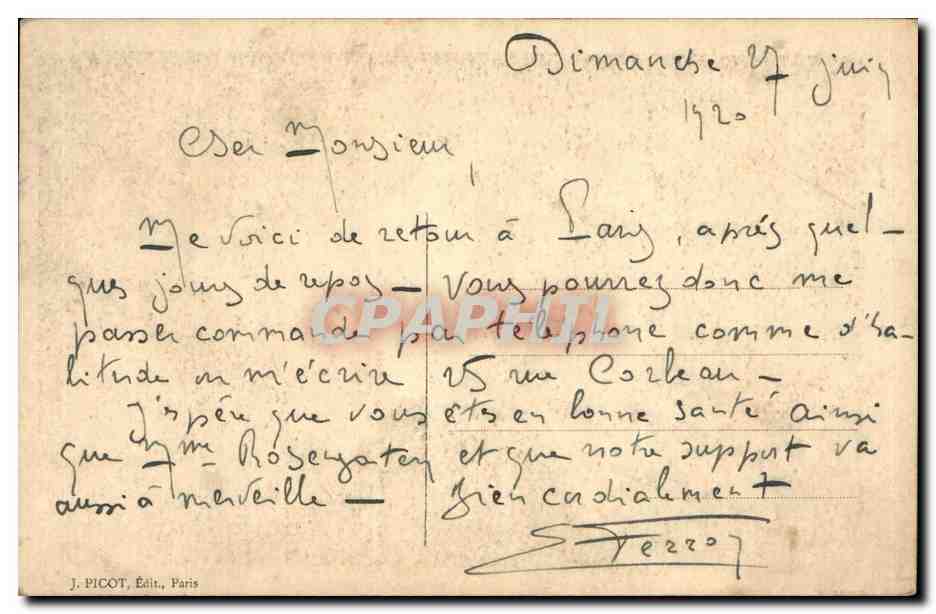 Dimanche 27 juin
1920
Cher Monsieur,
Me voici de retour à Paris, après quel-
ques jours de repos — Vous pourrez donc me
passer commande par téléphone comme d'ha-
bitude ou m'écrire 25 rue Corbeau —
J'espère que vous êtes en bonne santé ainsi
que Mme et que notre support va
aussi à merveille — Bien cordialement
CPAPHIL
J. PICOT, Édit., Paris